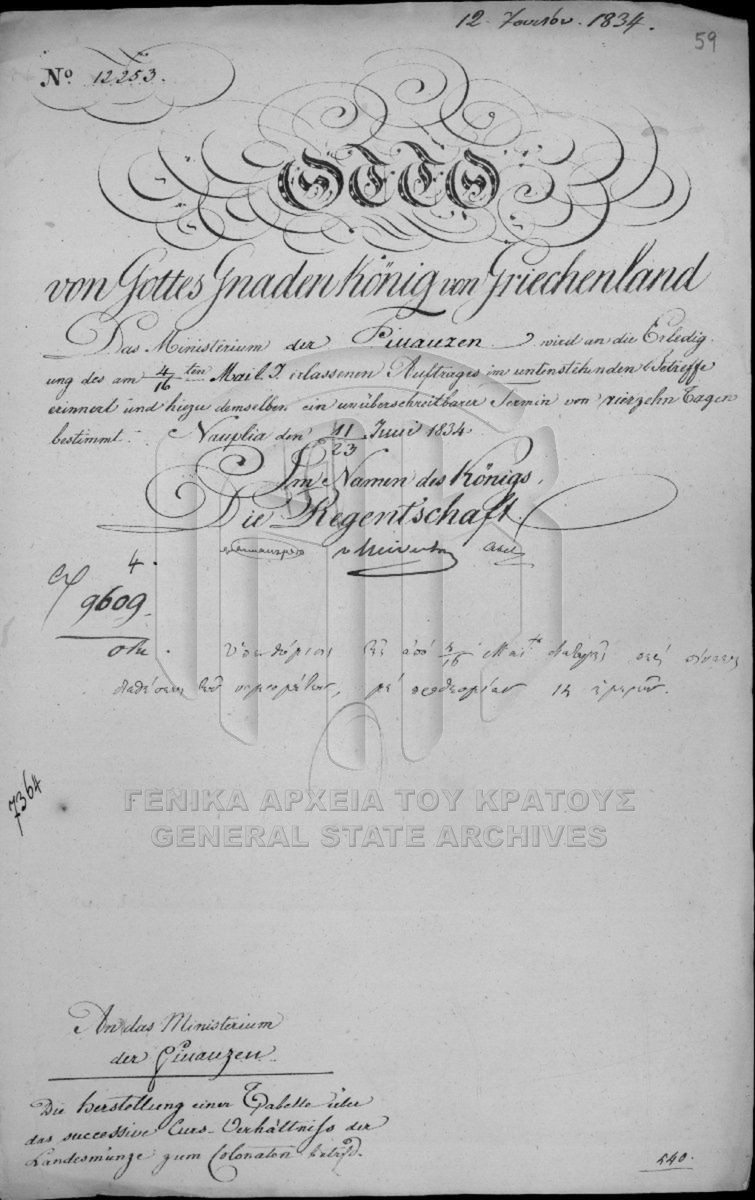 12 Ἰουνίου. 1834.
59
No. 12253.
OTTO
von Gottes Gnaden König von Griechenland
Das Ministerium der Finanzen wird an die Erledig-
ung des am 4/16 ten Mai l. J. erlassenen Auftrages im untenstehenden Betreffe
erinnert und hiezu demselben ein unüberschreitbarer Termin von vierzehn Tagen
bestimmt. Nauplia den 11/23 Juni 1834.
Im Namen des Königs,
Die Regentschaft.
Abel
4.
9609.
μὲ προθεσμίαν 14 ἡμερῶν.
7364
ΓΕΝΙΚΑ ΑΡΧΕΙΑ ΤΟΥ ΚΡΑΤΟΥΣ
GENERAL STATE ARCHIVES
An das Ministerium
der Finanzen.
Die Herstellung einer Tabelle über
das successive Curs-Verhältniß der
Landesmünze zum Colonaten betrfd.
540.